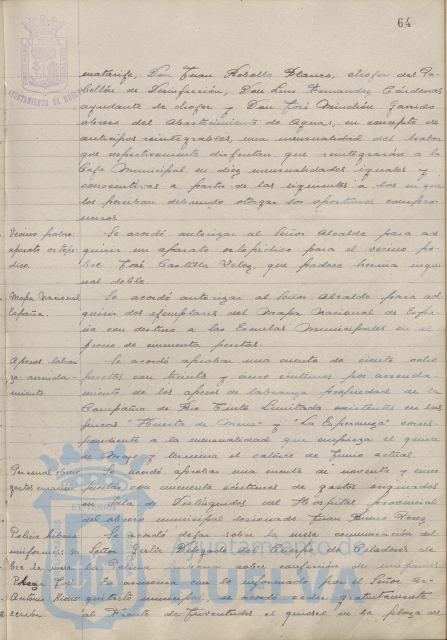 64
AYUNTAMIENTO DE HUELVA
matarife, Don Juan Rebollo Blanco, chofer del Pa-
bellón de Desinfección, Don Luis Hernandez Cárdenas
ayudante de chofer y Don José Minchón Garrido
obrero del Abastecimiento de Aguas, en concepto de
anticipos reintegrables, una mensualidad del haber
que respectivamente disfrutan, que reintegrarán a la
Caja Municipal en diez mensualidades iguales y
consecutivas a partir de las siguientes a los en que
los perciban debiendo otorgar los oportunos compro-
misos
Vecino pobre
aparato ortopé-
dico.
Se acordó autorizar al Señor Alcalde para ad
quirir un aparato ortopédico para el vecino po-
bre José Castilla Velez, que padece hernia ingui
nal doble
Mapa Nacional
España.
Se acordó autorizar al Señor Alcalde para ad
quirir dos ejemplares del Mapa Nacional de Espa-
ña con destino a las Escuelas Municipales en el
precio de cincuenta pesetas.
Aperos labran
za arrenda-
miento
Se acordó aprobar una cuenta de ciento
pesetas con treinta y cinco céntimos por arrenda-
miento de los aperos de labranza propiedad de la
Compañia de Rio Tinto Limitada existentes en las
fincas "Huerta de Mena" y "La Esperanza" corres-
pondiente a la mensualidad que empieza el quince
de Mayo y termina el catorce de Junio actual.
Personal obrero
gastos curación
Se acordó aprobar una cuenta de noventa y cinco
pesetas con cincuenta céntimos de gastos originados
en Sala de Distinguidos del Hospital provincial
del obrero municipal lesionado Juan Perez
Policia urbana
uniformes
Se acordó dejar sobre la mesa comunicación del
Señor Delegado del Cuerpo de Celadores de
la Policia urbana sobre confección de uniformes
En armonia con lo informado por el Señor Ar-
quitecto municipal, se acordó ceder gratuitamente
al Frente de Juventudes el quiosco en la plaza de
Ayuntamiento de
HUELVA